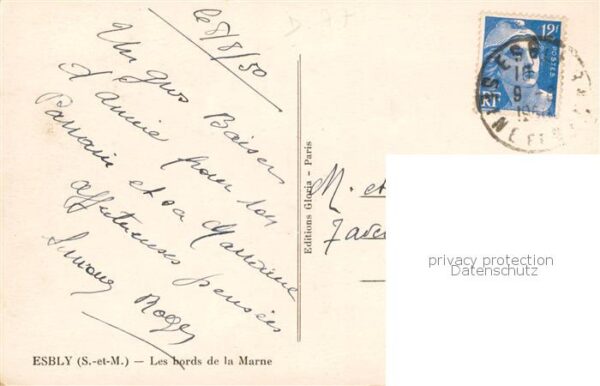 le 8/8/50
Un gros Baiser
d'Annie pour son
Parrain et sa Marraine
affectueuses pensées
Simone Roger
ESBLY (S.-et-M.) — Les bords de la Marne
Editions Gloria - Paris
12F
POSTES
RF
ESBLY
9
M. et
privacy protection
Datenschutz